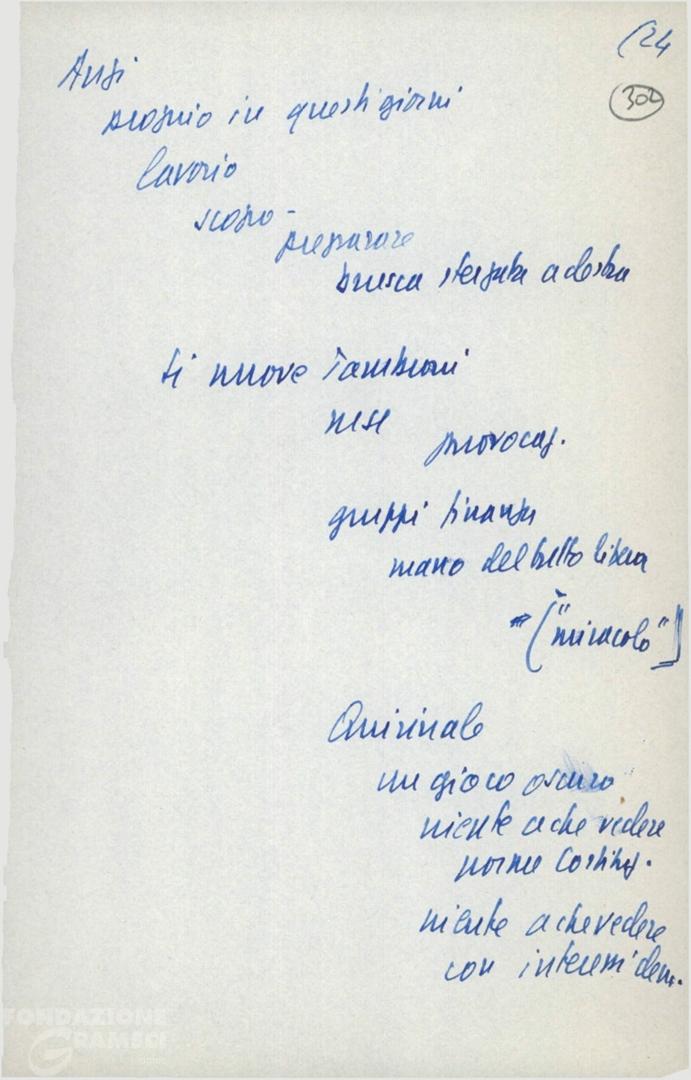 (24
302
Anzi
proprio in questi giorni
lavorio
scopo -
preparare
brusca sterzata a destra
Si muove Tambroni
MSI
provocaz.
gruppi finanz
mano del tutto libera
("miracolo")
Quirinale
un gioco oscuro
niente a che vedere
norme Costituz.
niente a che vedere
con interessi dem.
FONDAZIONE
GRAMSCI